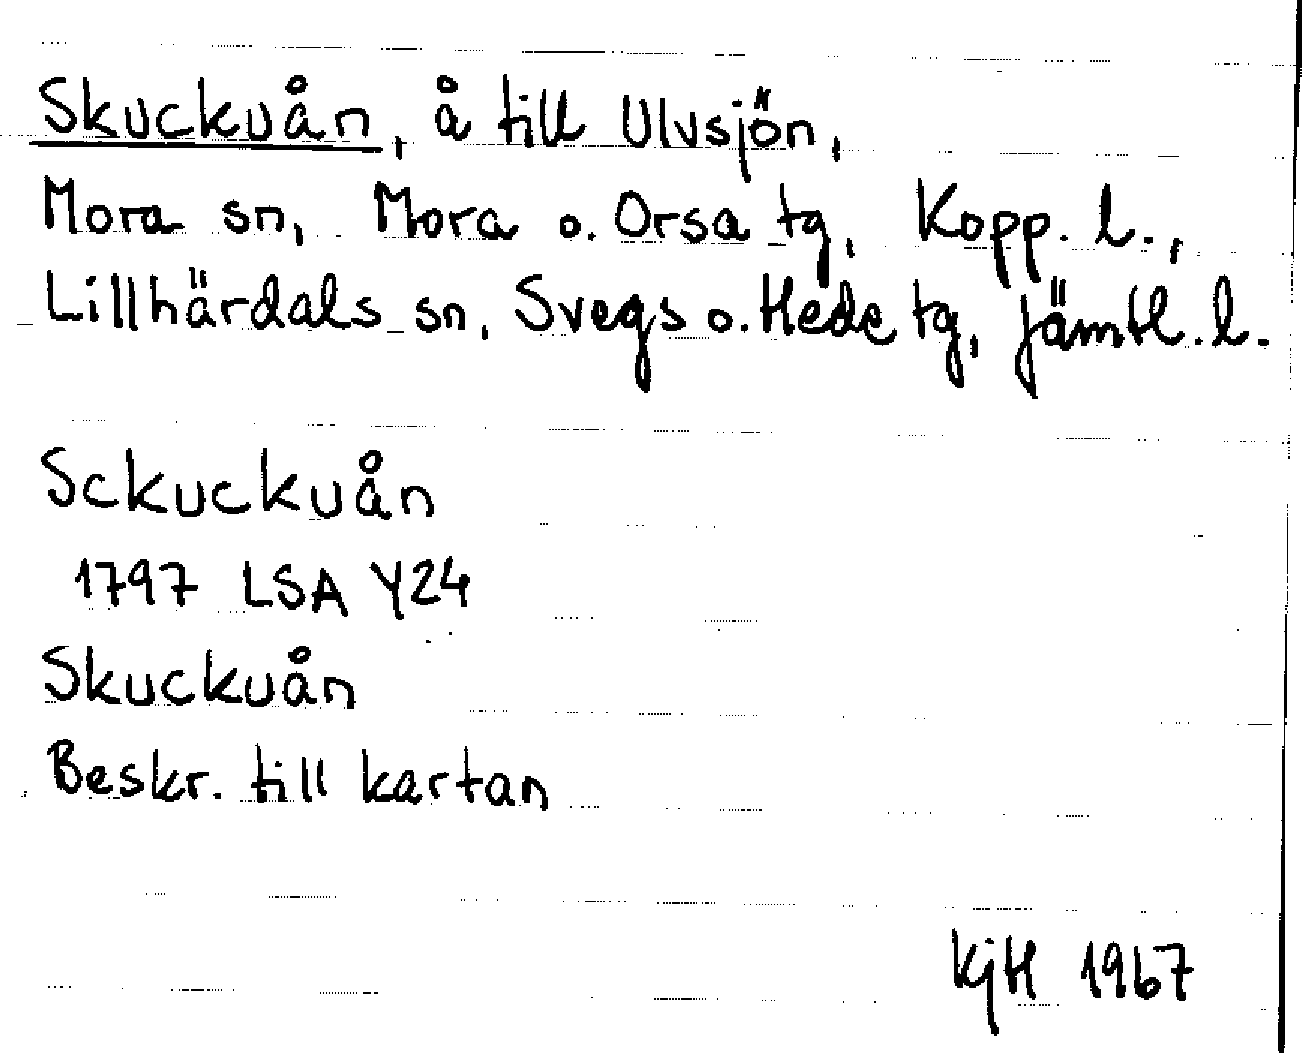 Skuckuån, å till Ulvsjön,
Mora sn, Mora o. Orsa tg, Kopp. l.,
Lillhärdals sn, Svegs o. Hede tg, Jämtl. l.
Sckuckuån
1797 LSA Y24
Skuckuån
Beskr. till kartan
KjH 1967